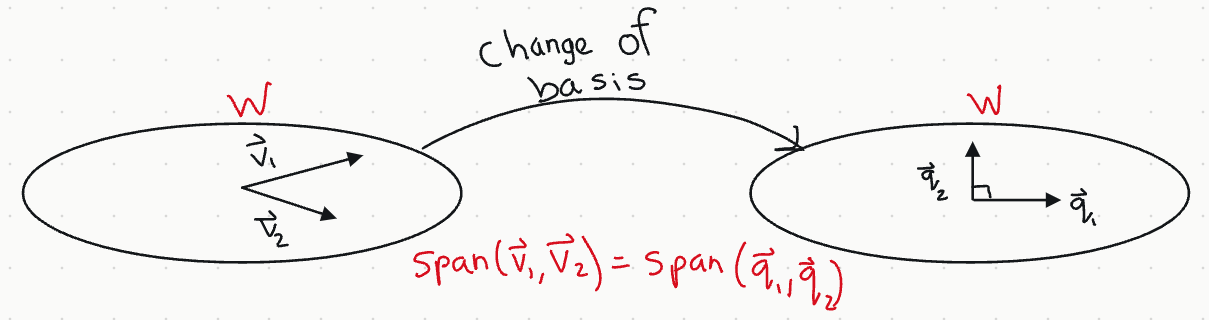 change of
basis
W
W
v⃗₁
v⃗₂
q⃗₂
q⃗₁
Span(v⃗₁, v⃗₂) = Span(q⃗₁, q⃗₂)